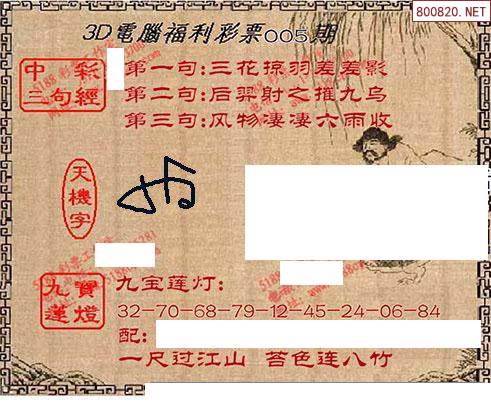 800820.NET
3D電腦福利彩票005期
中彩
三句經
第一句:三花掠羽差差影
第二句:后羿射之摧九乌
第三句:风物凄凄六雨收
天機字
九寳
蓮燈
九宝莲灯:
32-70-68-79-12-45-24-06-84
配:
一尺过江山 苔色连八竹